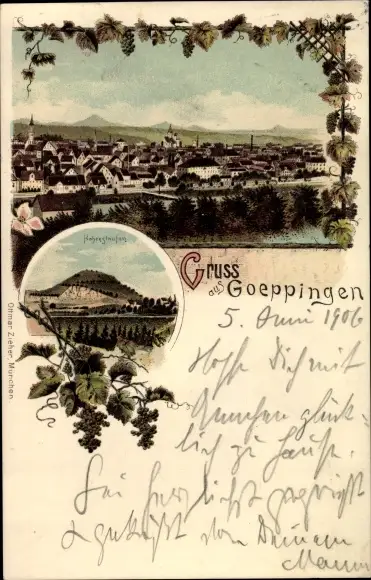 Hohenstaufen
Gruss
aus Goeppingen
Ottmar Zieher, München.
5. Juni 1906
Hoffe Dich mit
glück-
lich zu Hause.
Sei herzlichst gegrüßt
& geküßt von Deinem
Mann